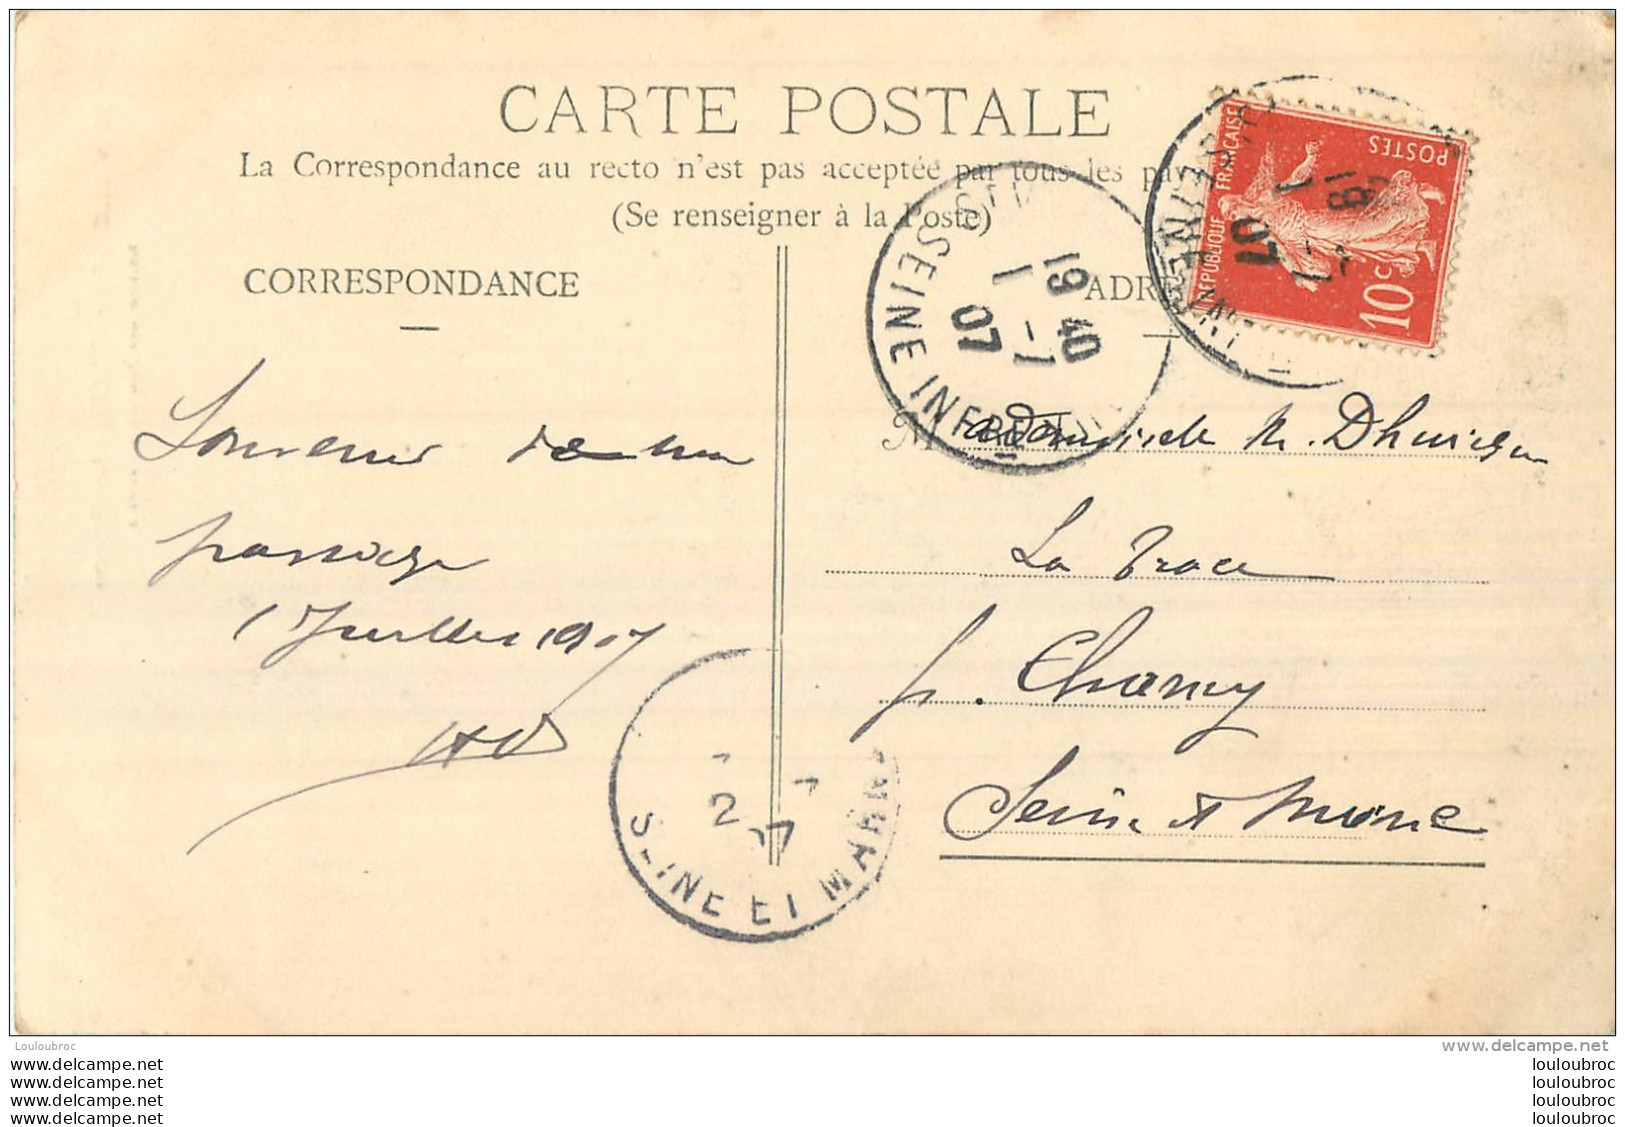 CARTE POSTALE
La Correspondance au recto n'est pas acceptée par tous les pay
(Se renseigner à la Poste)
CORRESPONDANCE
ADR
REPUBLIQUE FRANÇAISE
POSTES
10 c
1 - 7
07
SEINE INFRE
19 40
1 - 7
07
Souvenir de mon
passage
1 Juillet 1907
M
La Trace
p. Chancy
Seine et Marne
2 - 7
07
SEINE ET MARNE
Louloubroc
www.delcampe.net
www.delcampe.net
www.delcampe.net
www.delcampe.net
www.delcampe.net
louloubroc
louloubroc
louloubroc
louloubroc